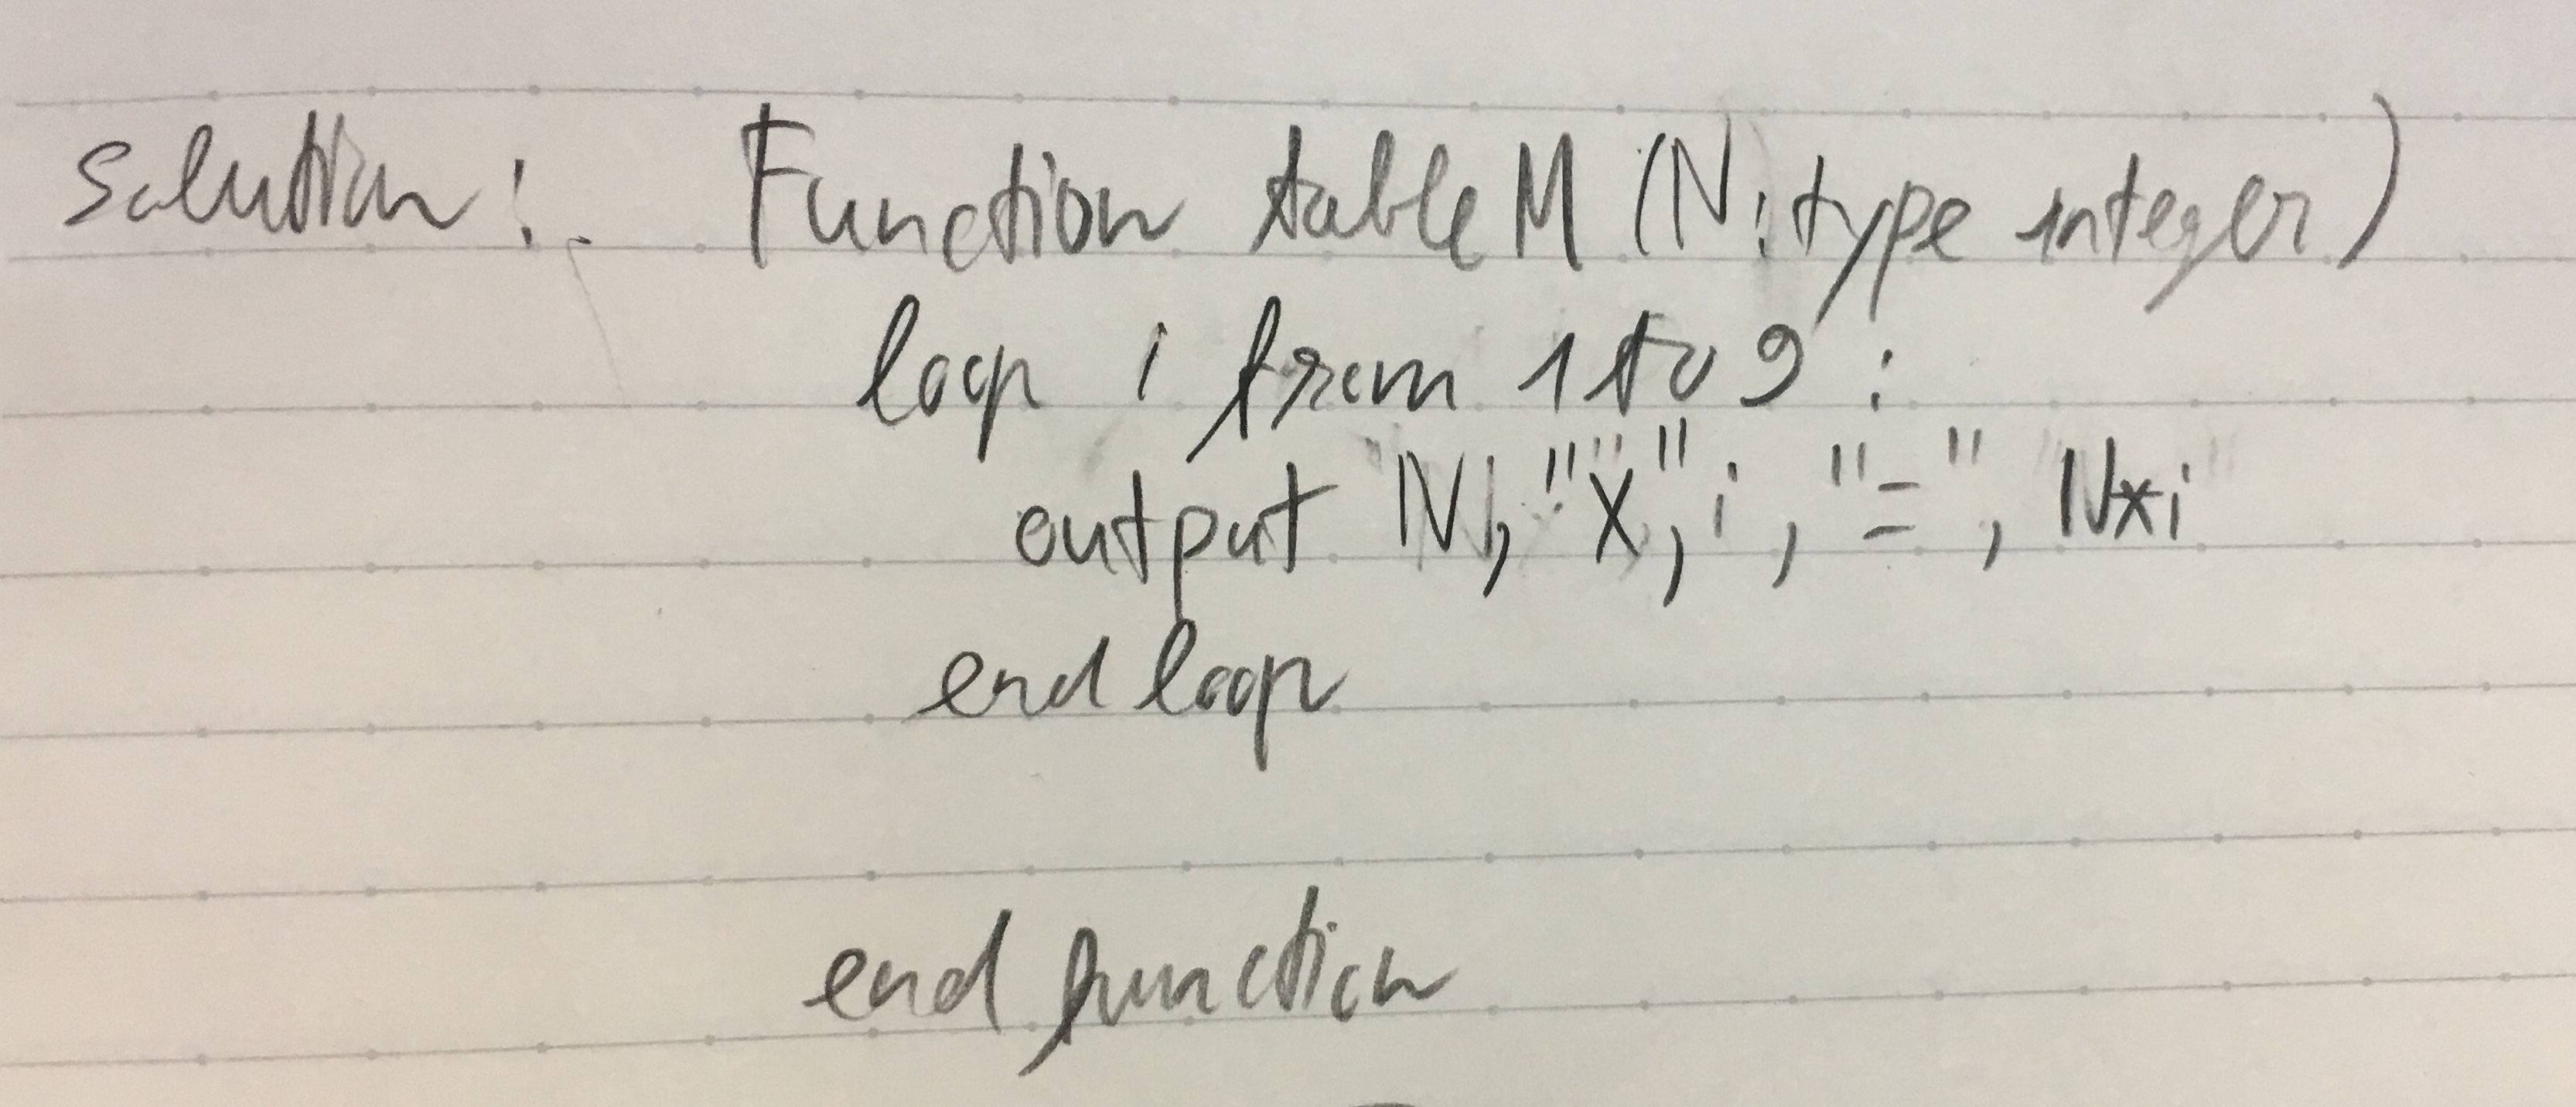 Solution: Function tableM (N: type integer)
loop i from 1 to 9 :
output N, "X", i, "=", N*i
end loop
end function